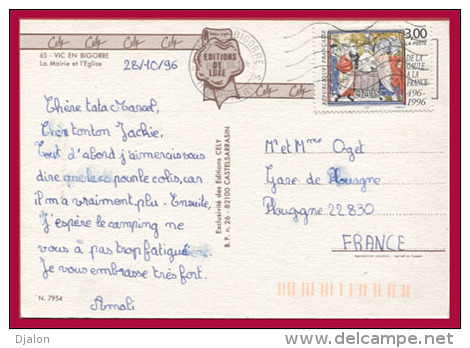 Cely Cely Cely Cely
65 - VIC EN BIGORRE
La Mairie et l'Eglise
28/10/96
EDITIONS
DE
LUXE
BIGORRE
REPUBLIQUE FRANÇAISE
3,00
LA POSTE
DE LA
GAULE
A LA
FRANCE
496-
1996
Chère tata Marcel,
Cher tonton Jackie,
Tout d'abord j'aimerais vous
dire que le co pour le colis, car
il m'a vraiment plu. Ensuite,
j'espère le camping ne
vous à pas trop fatigué
Je vous embrasse très fort.
Amali
N. 7954
Exclusivité des Editions CELY
B.P. n. 26 - 82100 CASTELSARRASIN
Mr et Mme Oget
Gare de Plouagne
Plougagne 22830
FRANCE
Djalon
http://www.delcampe.net